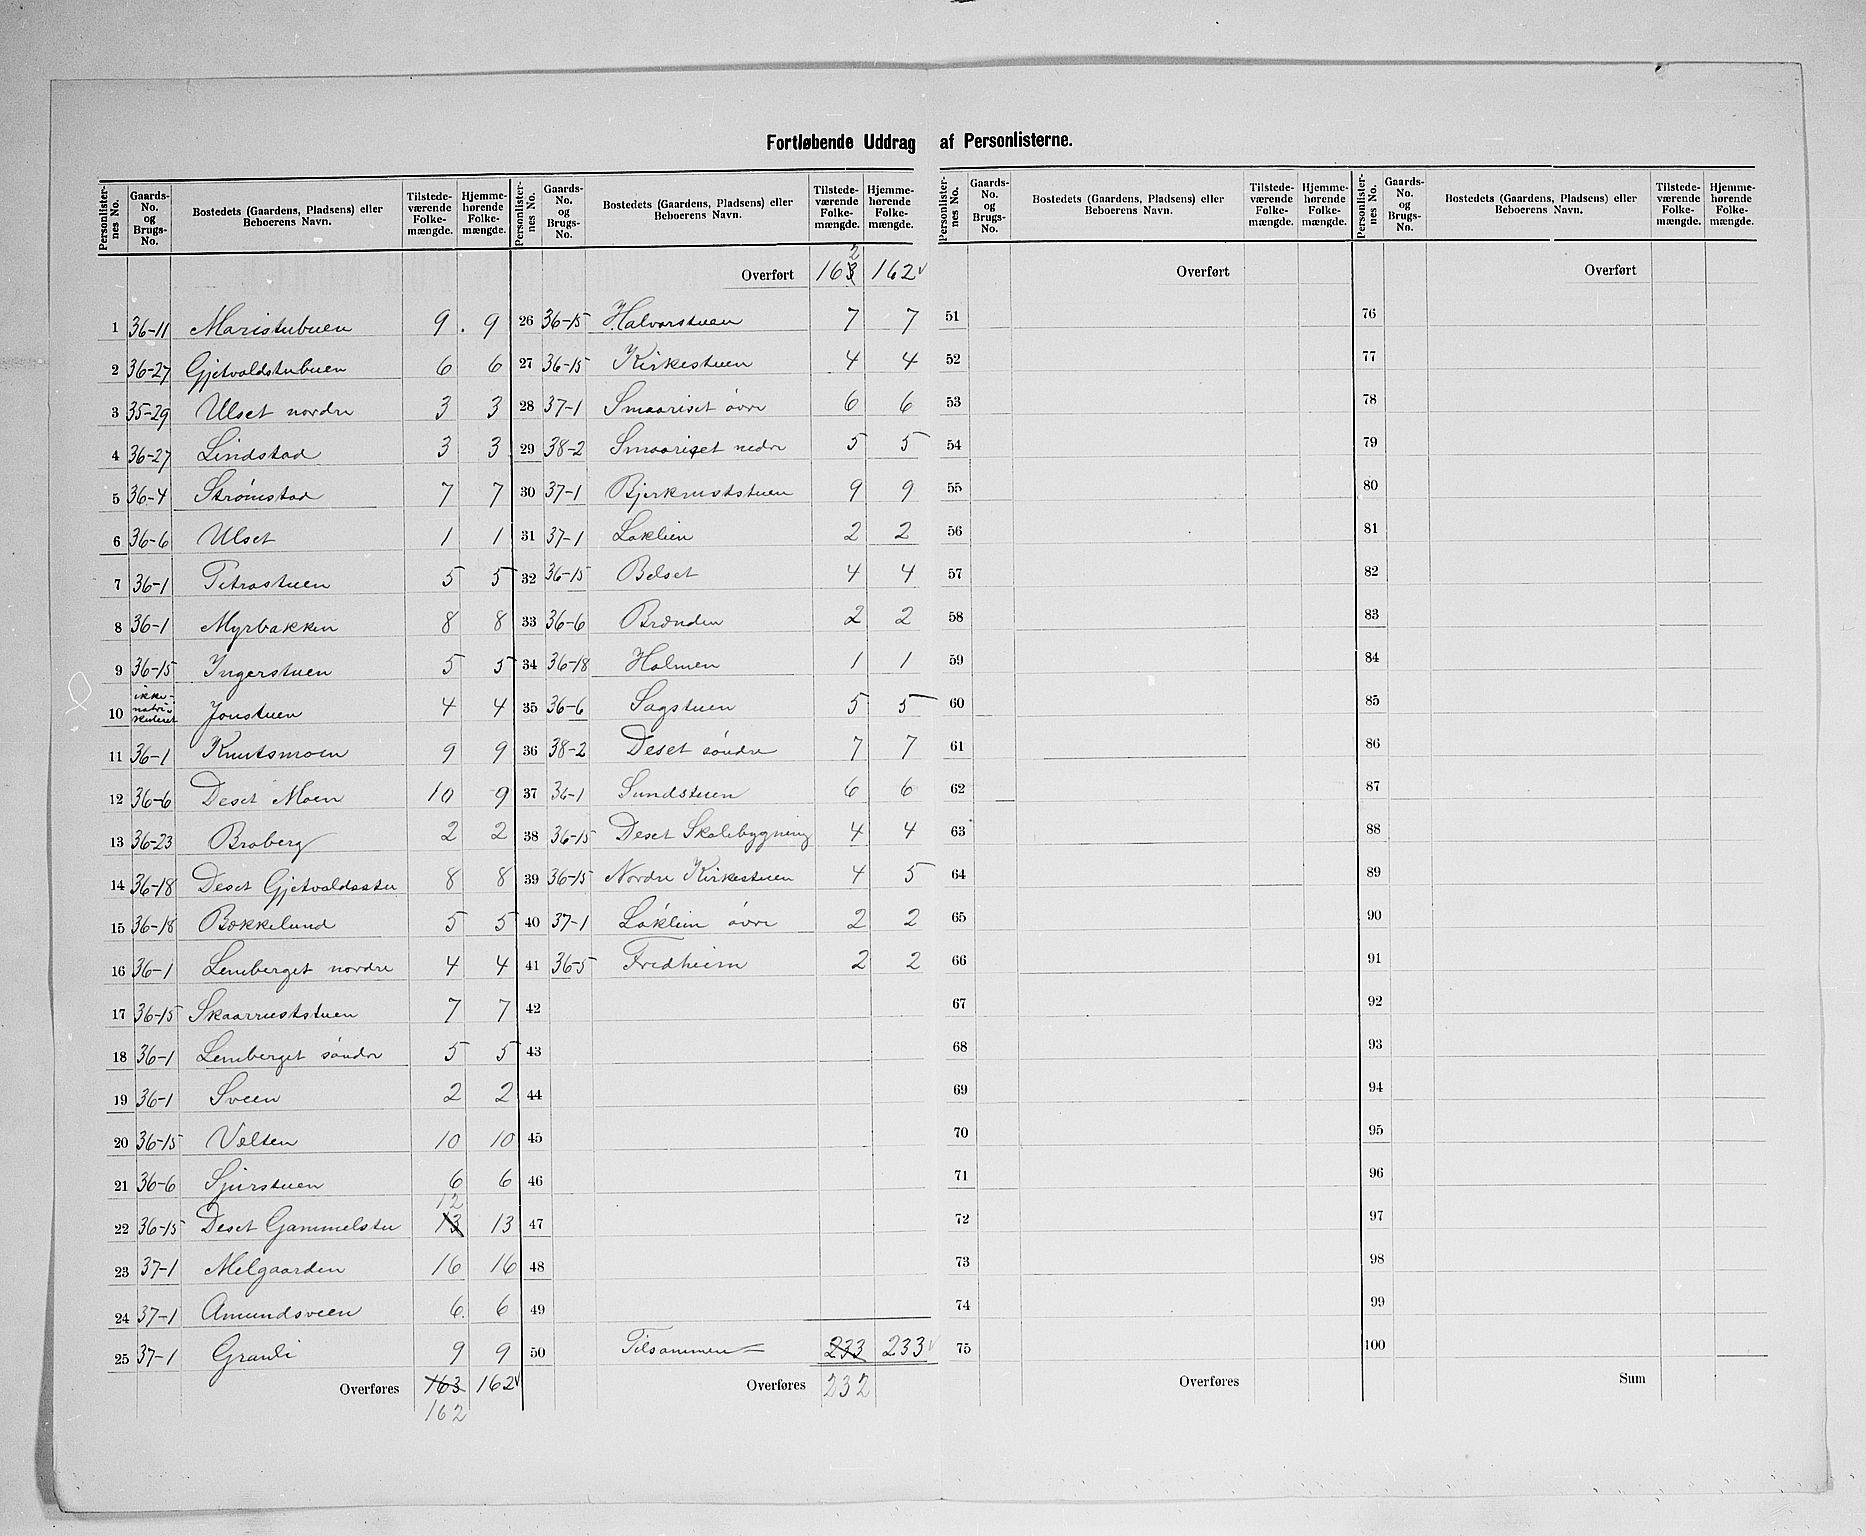 Fortløbende Uddrag af Personlisterne.
Personlister-nes No. | Gaards-No. og Brugs-No. | Bostedets (Gaardens, Pladsens) eller Beboerens Navn. | Tilstede-værende Folke-mængde. | Hjemme-hørende Folke-mængde.
1 36-11 Maristubuen 9 . 9
2 36-27 Gjetvoldstubuen 6 6
3 35-29 Ulset nordre 3 3
4 36-27 Lindstad 3 3
5 36-4 Strømstad 7 7
6 36-6 Ulset 1 1
7 36-1 Petrastuen 5 5
8 36-1 Myrbakken 8 8
9 36-15 Ingerstuen 5 5
10 ikke-matri-skuleret Jonstuen 4 4
11 36-1 Knutsmoen 9 9
12 36-6 Deset Moen 10 9
13 36-23 Broberg 2 2
14 36-18 Deset Gjetvoldsstu 8 8
15 36-18 Bækkelund 5 5
16 36-1 Lemberget nordre 4 4
17 36-15 Skaarruststuen 7 7
18 36-1 Lemberget søndre 5 5
19 36-1 Sveen 2 2
20 36-15 Velten 10 10
21 36-6 Sjurstuen 6 6
12
22 36-15 Deset Gammelstu 13 13
23 37-1 Melgaarden 16 16
24 37-1 Amundsveen 6. 6
25 37-1 Granli 9 9
Overføres 163 162
162
Personlister-nes No. | Gaards-No. og Brugs-No. | Bostedets (Gaardens, Pladsens) eller Beboerens Navn. | Tilstede-værende Folke-mængde. | Hjemme-hørende Folke-mængde.
2
Overført 163 162
26 36-15 Halvorstuen 7 7
27 36-15 Kirkestuen 4 4
28 37-1 Smaariset øvre 6 6
29 38-2 Smaariset nedre 5 5
30 37-1 Bjerknuststuen 9 9
31 37-1 Løklien 2 2
32 36-15 Belset 4 4
33 36-6 Brænden 2 2
34 36-18 Holmen 1 1
35 36-6 Sagstuen 5 5
36 38-2 Deset søndre 7 7
37 36-1 Sundstuen 6 6
38 36-15 Deset Skolebygning 4 4
39 36-15 Nordre Kirkestuen 4 5
40 37-1 Løklien øvre 2 2
41 36-5 Fredheim 2 2
42
43
44
45
46
47
48
49
50 Tilsammen 233 233
Overføres 232
Personlister-nes No. | Gaards-No. og Brugs-No. | Bostedets (Gaardens, Pladsens) eller Beboerens Navn. | Tilstede-værende Folke-mængde. | Hjemme-hørende Folke-mængde.
Overført
51
52
53
54
55
56
57
58
59
60
61
62
63
64
65
66
67
68
69
70
71
72
73
74
75
Overføres
Personlister-nes No. | Gaards-No. og Brugs-No. | Bostedets (Gaardens, Pladsens) eller Beboerens Navn. | Tilstede-værende Folke-mængde. | Hjemme-hørende Folke-mængde.
Overført
76
77
78
79
80
81
82
83
84
85
86
87
88
89
90
91
92
93
94
95
96
97
98
99
100
Sum